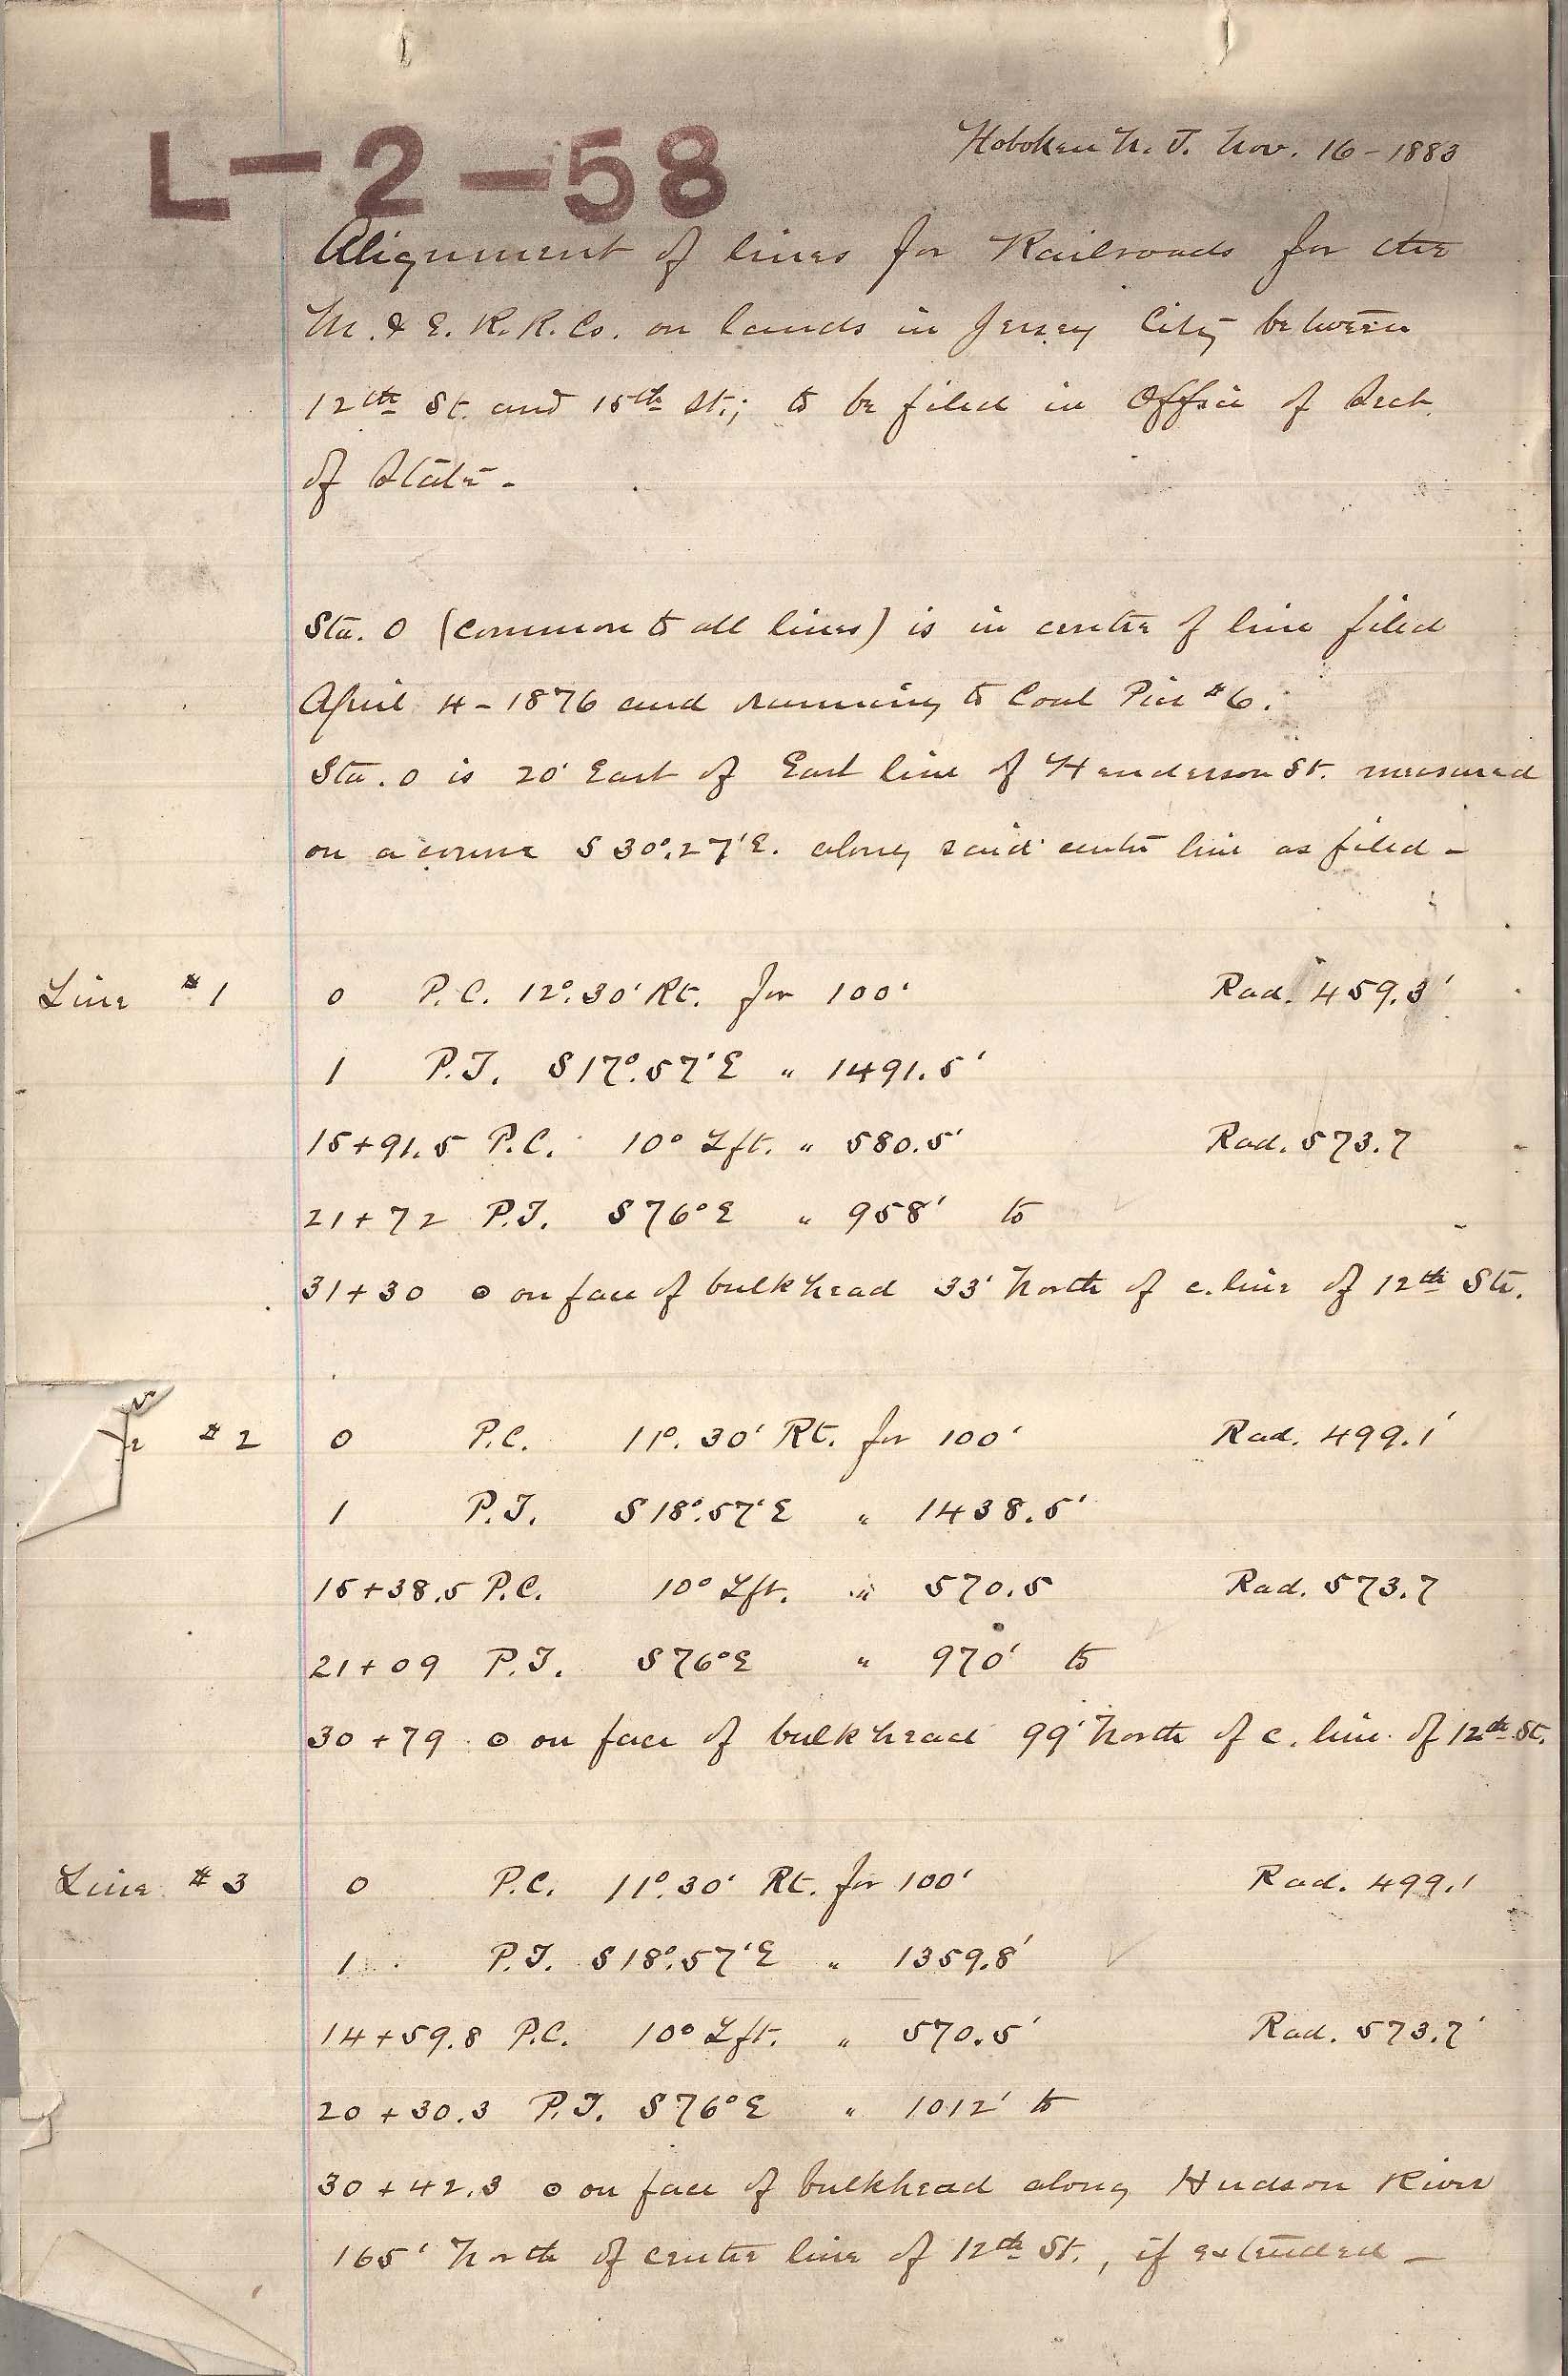 L-2-58
Hoboken N. J. Nov. 16-1883
Alignment of lines for Railroads for the
M. & E. R. R. Co. on lands in Jersey City between
12th St. and 15th St.; to be filed in Office of Sect.
of State-
Sta. 0 (common to all lines) is in center of line filed
April 4-1876 and running to Coal Pier #6.
Sta. 0 is 20' East of East line of Henderson St. measured
on a course S 30°.27'E. along said center line as filed-
Line #1 0 P.C. 12°.30' Rt. for 100' Rad. 459.3'
1 P.T. S 17°.57'E " 1491.5'
15+91.5 P.C. 10° Lft. " 580.5' Rad. 573.7
21+72 P.T. S 76° E " 958' to
31+30 ⊙ on face of bulkhead 33' North of c. line of 12th St.
#2 0 P.C. 11°.30' Rt. for 100' Rad. 499.1'
1 P.T. S 18°.57'E " 1438.5'
15+38.5 P.C. 10° Lft. " 570.5 Rad. 573.7
21+09 P.T. S 76° E " 970' to
30+79 ⊙ on face of bulkhead 99' North of c. line of 12th St.
Line #3 0 P.C. 11°.30' Rt. for 100' Rad. 499.1
1 P.T. S 18°.57'E " 1359.8'
14+59.8 P.C. 10° Lft. " 570.5' Rad. 573.7'
20+30.3 P.T. S 76° E " 1012' to
30+42.3 ⊙ on face of bulkhead along Hudson River
165' North of center line of 12th St., if extended-